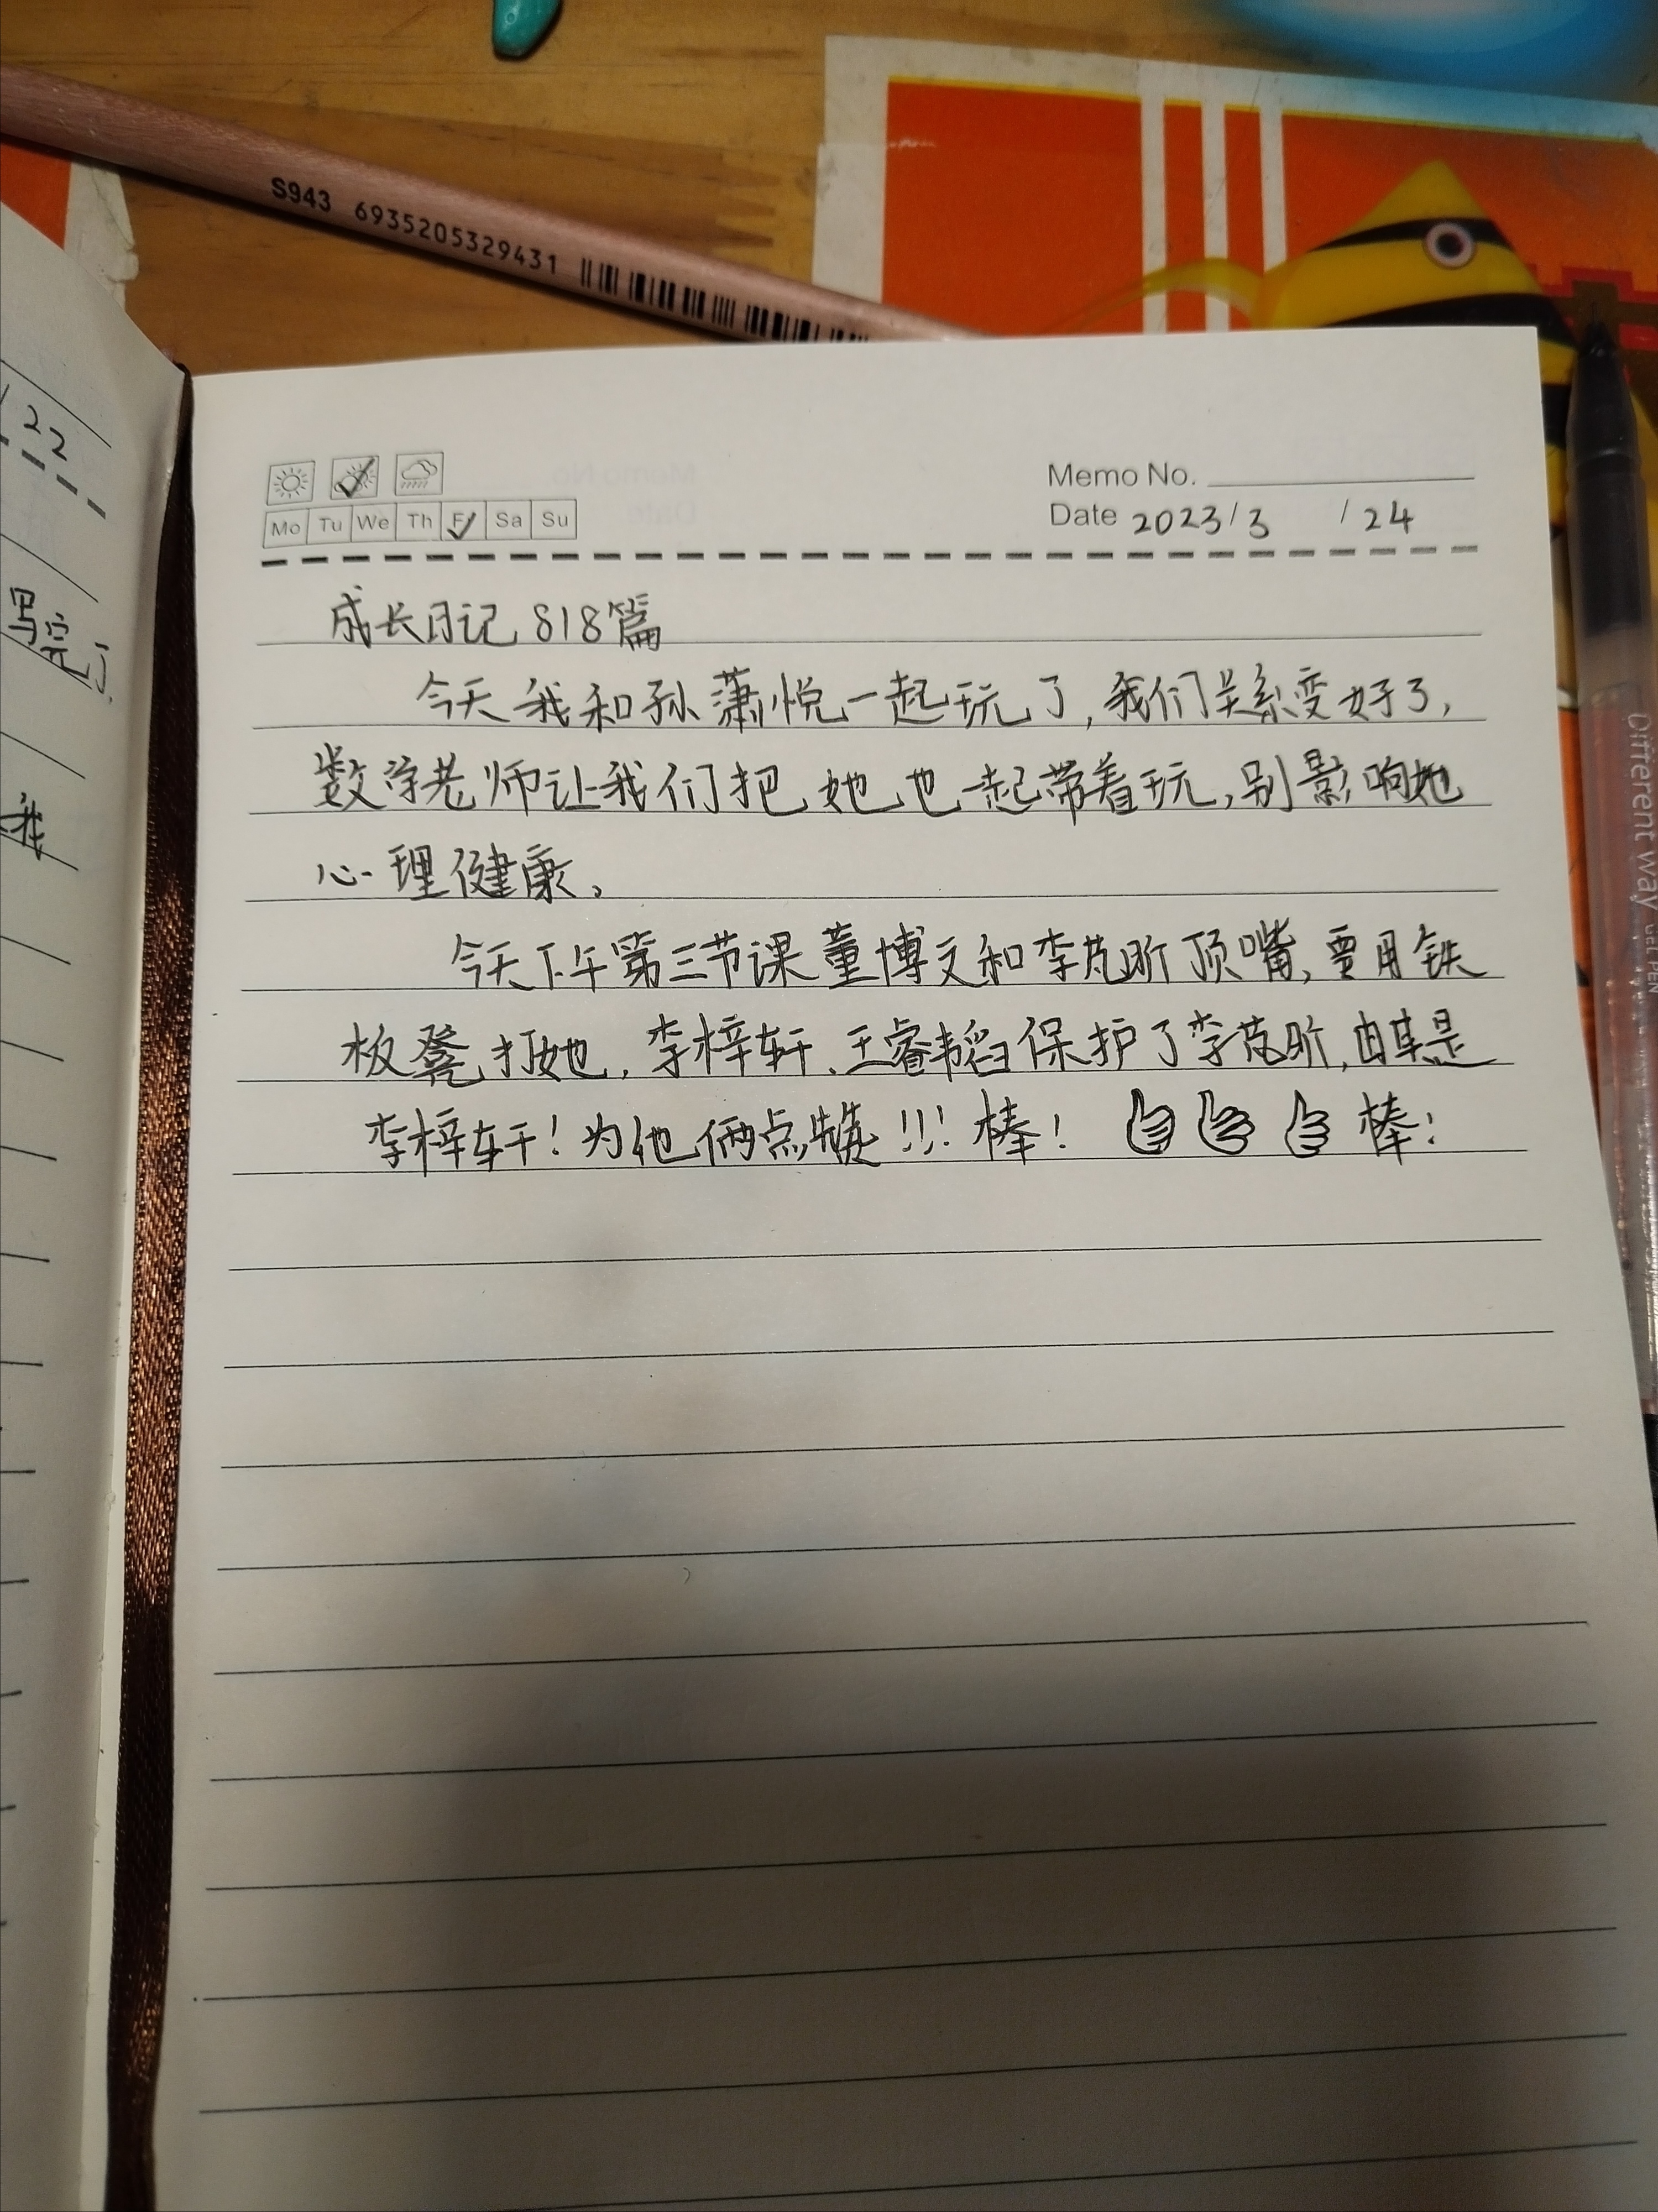 S943 6935205329431
22
写完了.
我
Memo No.
Mo Tu We Th Fr Sa Su
Date 2023/3 /24
成长日记 818篇
今天我和孙潇悦一起玩了,我们关系变好了,
数学老师让我们把她也一起带着玩,别影响她
心理健康。
今天下午第三节课董博文和李芃昕顶嘴,要用铁
板凳打她,李梓轩、王睿韬保护了李芃昕,由其是
李梓轩!为他俩点赞!!!棒! 棒!
Different way GEL PEN